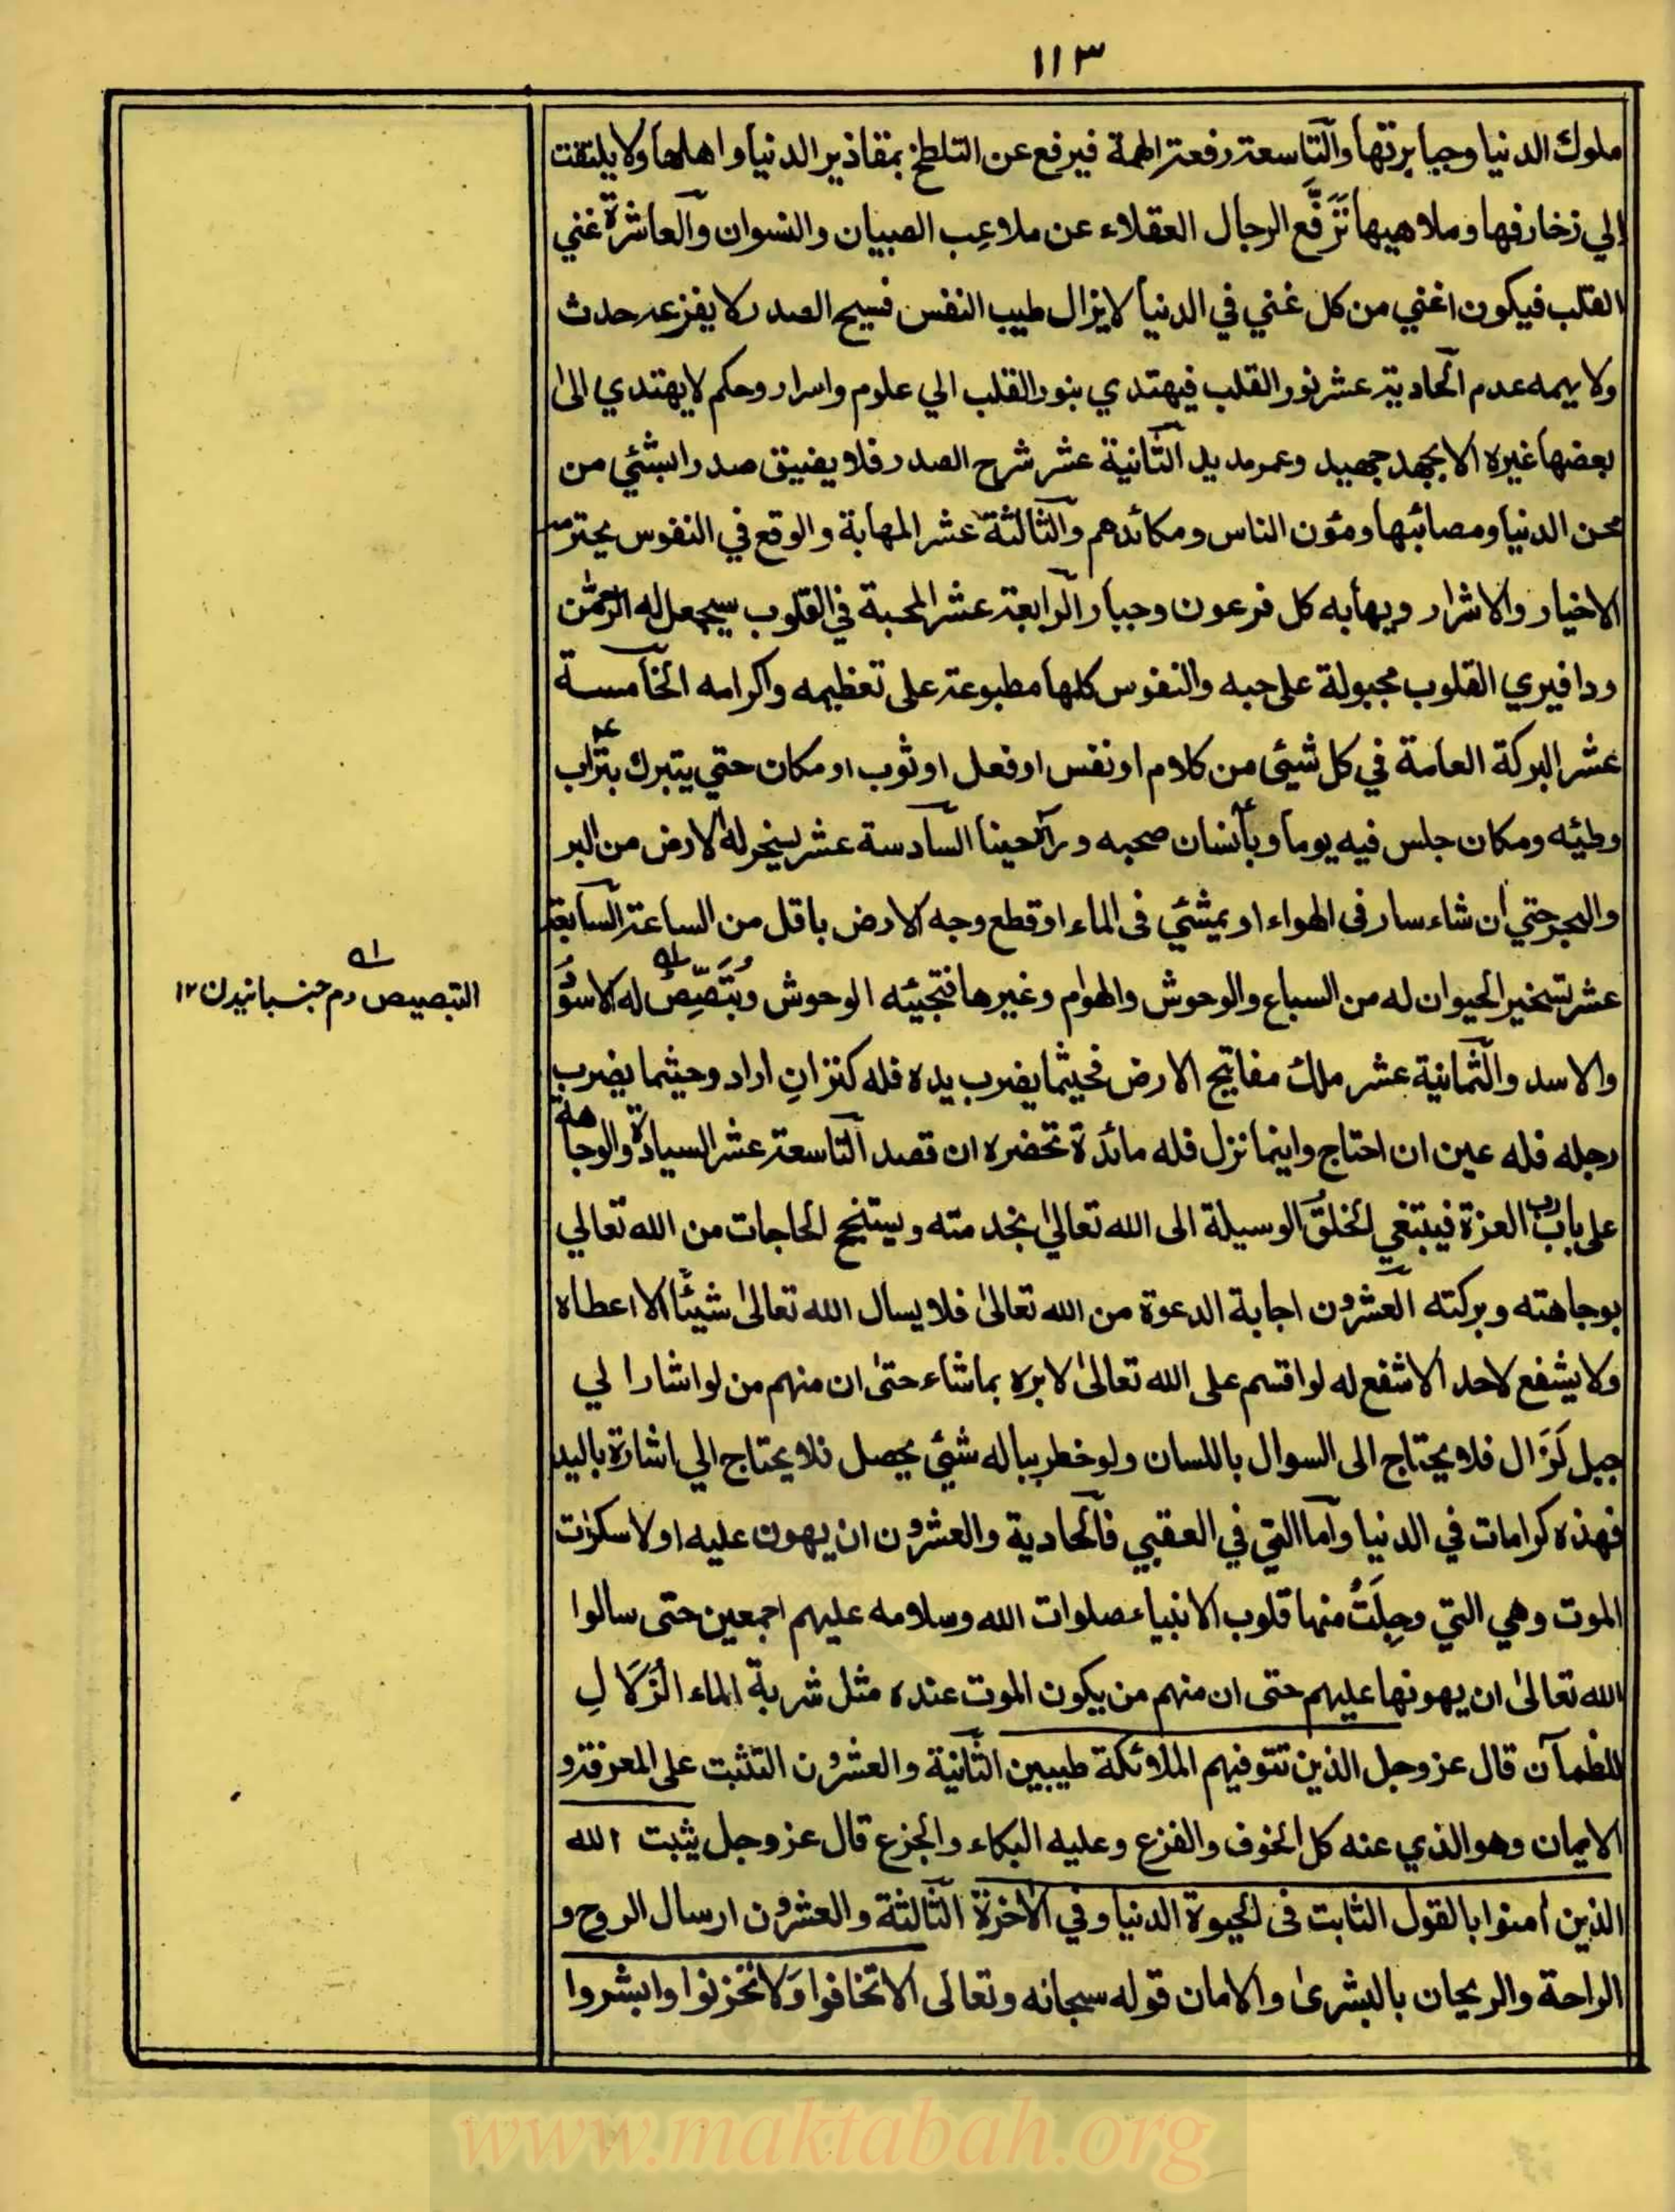 ١١٣
ملوك الدنيا وجبابرتها والتاسعة رفعة الهمة فيرفع عن التلطخ بمقاذير الدنيا واهلها ولا يلتفت
إلي زخارفها وملاهيها تَرَفُّع الرجال العقلاء عن ملاعِب الصبيان والنسوان والعاشرة غني
القلب فيكون اغني من كل غني في الدنيا لا يزال طيب النفس فسيح الصدر لا يفزعه حدث
ولا يهمه عدم الحادية عشر نور القلب فيهتدي بنور القلب الي علوم واسرار وحكم لا يهتدي الى
بعضها غيره الا بجهد جهيد وعمر مديد الثانية عشر شرح الصدر فلا يضيق صدرا بشئي من
محن الدنيا ومصائبها ومؤن الناس ومكائدهم والثالثة عشر المهابة والوقع في النفوس يحترمه
الاخيار والاشرار ويهابه كل فرعون وجبار الرابعة عشر المحبة في القلوب سيجعل له الرحمٰن
ودا فيري القلوب مجبولة على حبه والنفوس كلها مطبوعة على تعظيمه واكرامه الخامسة
عشر البركة العامة في كل شيئى من كلام او نفس او فعل او ثوب او مكان حتي يتبرك بتراب
وطئيه ومكان جلس فيه يوما وبأنسان صحبه و رآه حينا السادسة عشر يسخر له الارض من البر
والبحر حتي ان شاء سار فى الهواء او يمشي فى الماء او قطع وجه الارض باقل من الساعة السابعة
عشر تسخير الحيوان له من السباع والوحوش والهوام وغيرها فتجيئه الوحوش وتُبَصْبِصُ له الاسوُد
التبصيص دم جنبانيدن ١٢
والاسد والثمانية عشر ملك مفاتيح الارض فحيثما يضرب يده فله كنز انِ اراد وحيثما يضرب
رجله فله عين ان احتاج واينما نزل فله مائدة تحضره ان قصد التاسعة عشر السيادة والوجاهة
على باب رب العزة فيبتغي الخلق الوسيلة الى الله تعالىٰ بخدمته ويستنجح الحاجات من الله تعالي
بوجاهته وبركته العشرون اجابة الدعوة من الله تعالىٰ فلا يسال الله تعالىٰ شيئًا الا اعطاه
ولا يشفع لاحد الا شفع له لو اقسم على الله تعالىٰ لابره بما شاء حتىٰ ان منهم من لو اشار الي
جبل لَزَال فلا يحتاج الى السوال باللسان ولو خطر بباله شئي يحصل فلا يحتاج الي اشارة باليد
فهذه كرامات في الدنيا وآما التي في العقبي فالحادية والعشرون ان يهون عليه اولا سكرات
الموت وهي التي وجِلَتْ منها قلوب الانبياء صلوات الله وسلامه عليهم اجمعين حتى سالوا
الله تعالىٰ ان يهونها عليهم حتى ان منهم من يكون الموت عنده مثل شربة الماء الزُلالِ
للظمآن قال عز وجل الذين تتوفيهم الملائكة طيبين الثانية والعشرون التثبت على المعرفة و
الايمان وهو الذي عنه كل الخوف والفزع وعليه البكاء والجزع قال عز وجل يثبت الله
الذين اٰمنوا بالقول الثابت فى الحيوة الدنيا وفي الاٰخرة الثالثة والعشرون ارسال الروح و
الراحة والريحان بالبشرىٰ والامان قوله سبحانه وتعالى الا تخافوا وَلا تحزنوا وابشروا
www.maktabah.org